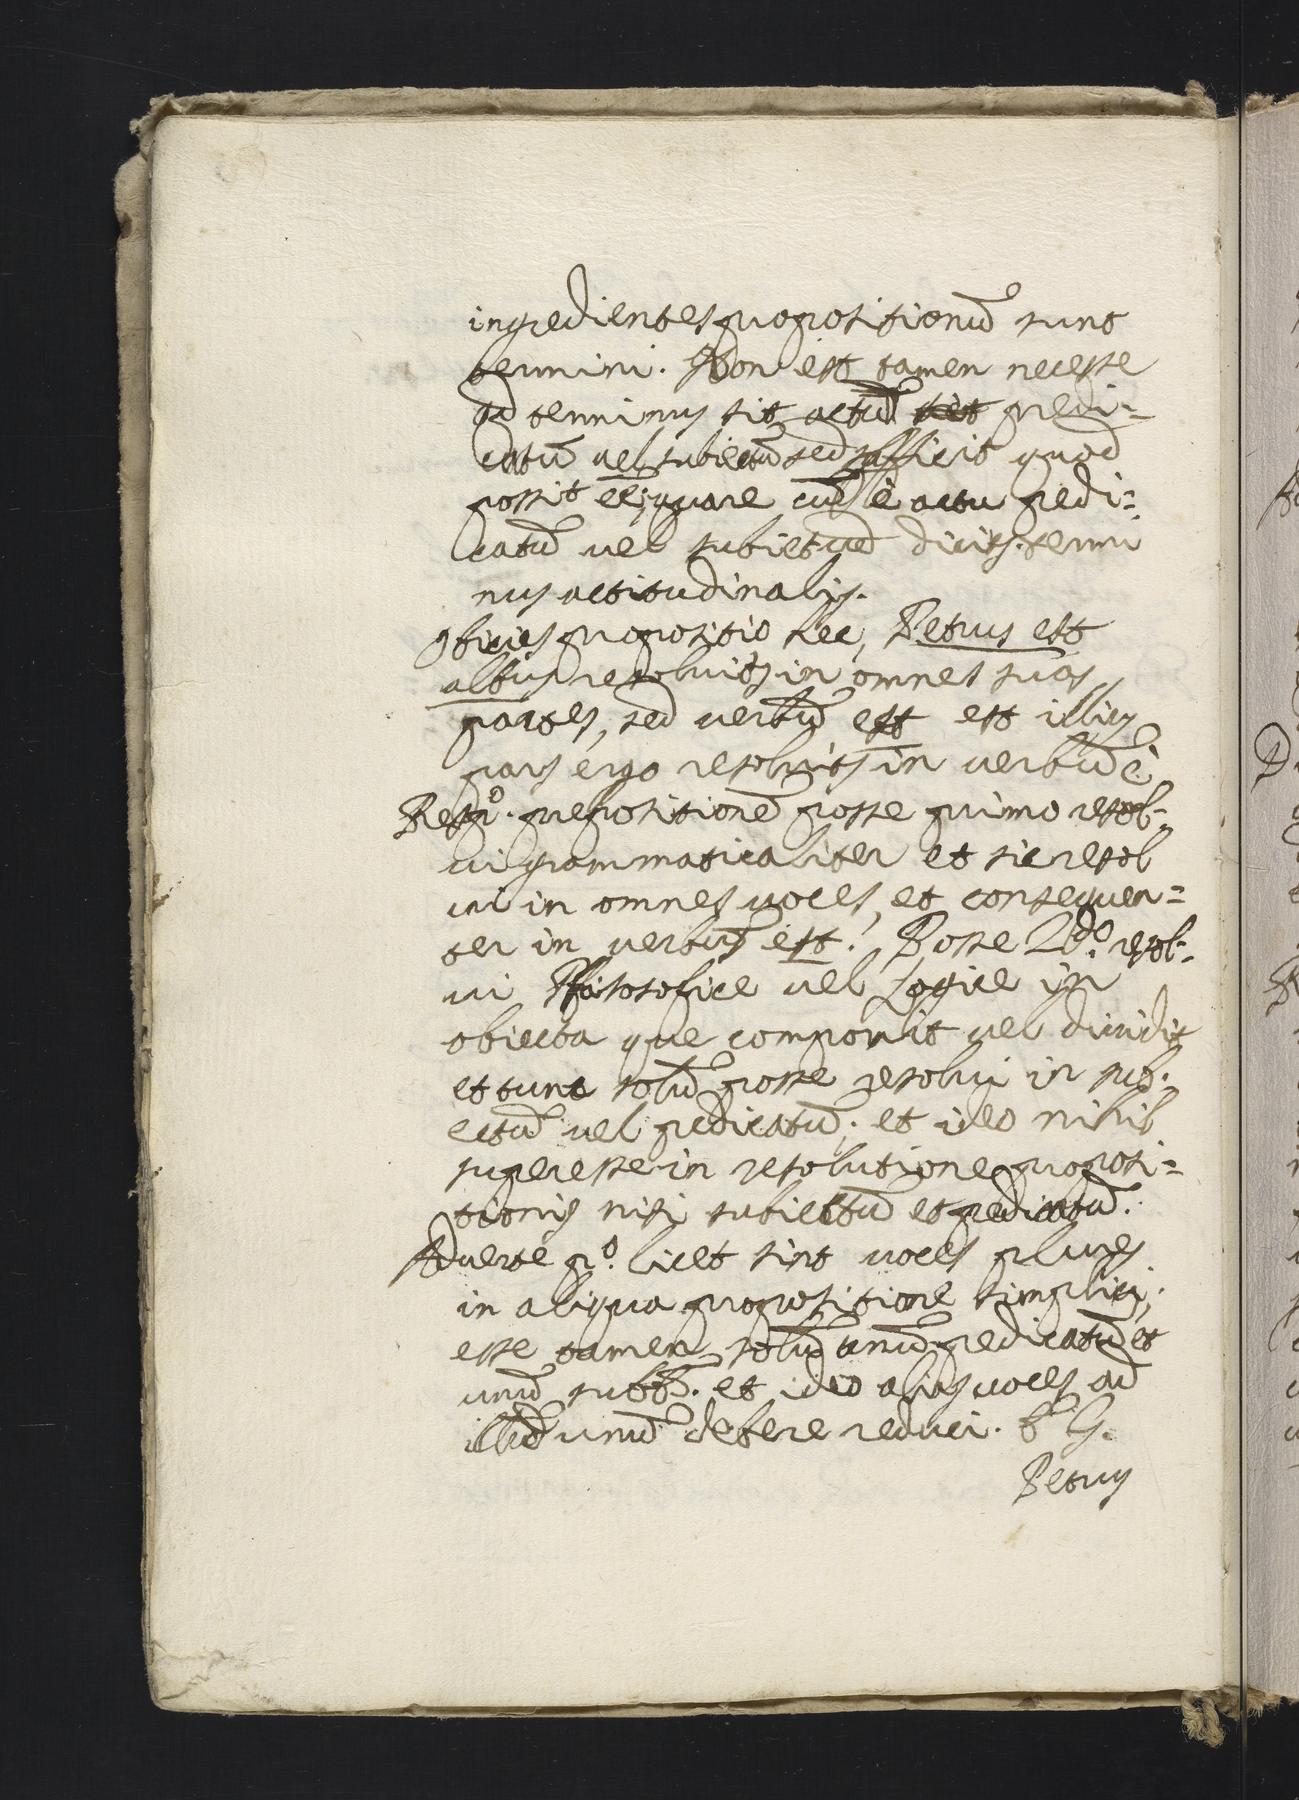 ingredientes propositionẽ sunt
termini. Non est tamen necesse
qd terminus sit actũ predi=
catũ vel subiectũ sed sufficit quod
possit eẽ; quare cũ ẽ actu predi=
catũ vel subiectũ dicitr. termi
nus actitudinalis.
obiicies propositio hec, Petrus est
albus resolvitr in omnes suas
partes, sed verbũ est est illius
pars ergo resolvitr in verbũ ẽ.
Respº. prepositionẽ posse primo resol-
vi grammaticaliter et sic resol
vi in omnes voces, et consequen=
ter in verbũ est. Posse 2dº. resol-
vi Philosofice vel Logice in
obiecta que componit vel dividit
et tunc solũ posse resolvi in sub.
ectũ vel predicatũ; et ideo nihil
superesse in resolutione proposi=
tionis nisi subiectũ et predicatũ.
Adverte pº. licet sint voces plures
in aliqua propositione simplici;
esse tamen solũ unũ predicatũ et
unũ subtũ. et ideo alias voces ad
illud unũ debere reduci. V. G.
Petrus